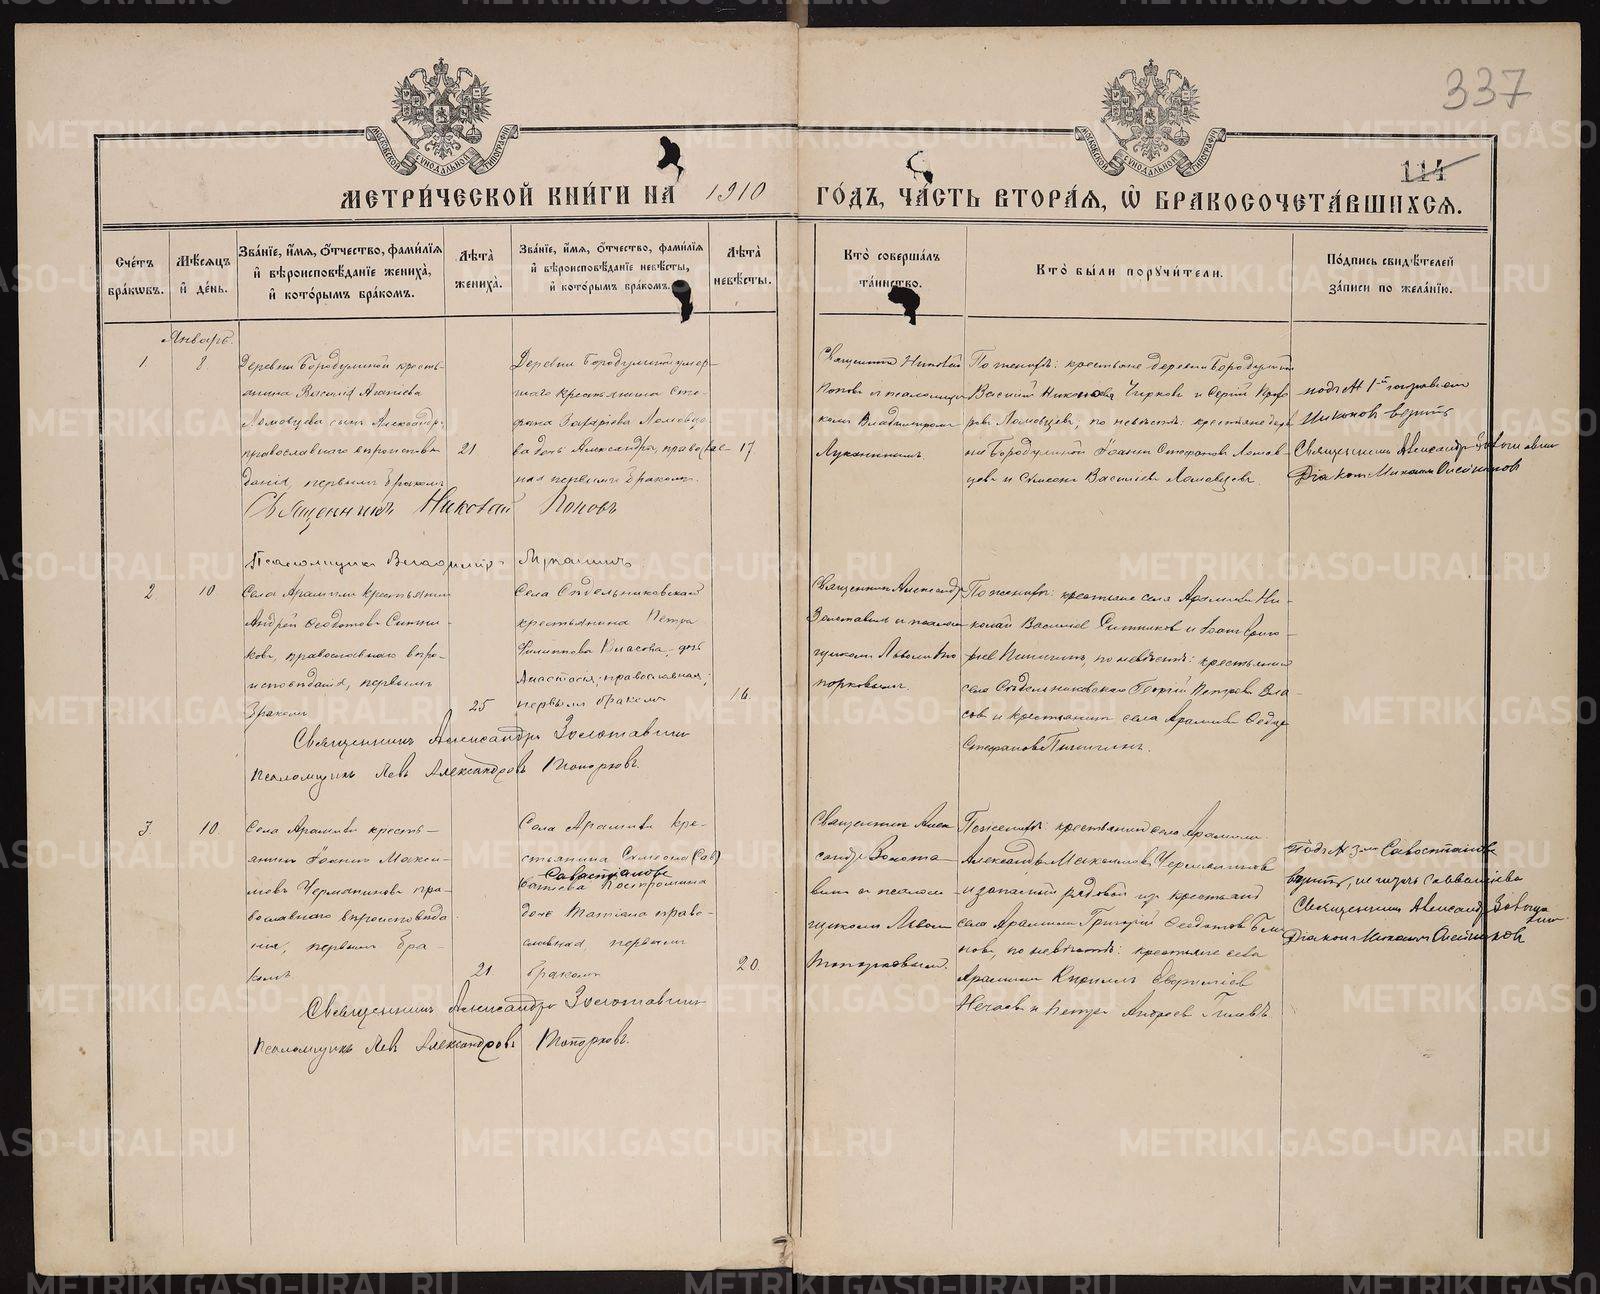 337
114
МОСКОВСКОЙ СѴНОДАЛЬНОЙ ТИПОГРАФІИ
МОСКОВСКОЙ СѴНОДАЛЬНОЙ ТИПОГРАФІИ
МЕТРИ́ЧЕСКОЙ КНИ́ГИ НА 1910 ГО́ДЪ, ЧА́СТЬ ВТОРА́Я, Ѽ БРАКОСОЧЕТА́ВШИХСЯ.
Сче́тъ бра́кѡвъ.
Мѣ́сяцъ и҆ де́нь.
Зва́нїе, и҆́мя, ѻ҆́тчество, фами́лїя и҆ вѣроисповѣ́данїе жениха̀, и҆ кото́рымъ бра́комъ.
Лѣ́та жениха̀.
Зва́нїе, и҆́мя, ѻ҆́тчество, фами́лїя и҆ вѣроисповѣ́данїе невѣ́сты, и҆ кото́рымъ бра́комъ.
Лѣ́та невѣ́сты.
Кто̀ соверша́лъ та́инство.
Кто̀ бы́ли порꙋчи́тели.
По́дпись свидѣ́телей за́писи по жела́нїю.
Январь.
1.
8.
Деревни Бородулиной кресть-
янина Василія
Ломовцева сынъ Александръ
православнаго вѣроисповѣ-
данія, первымъ бракомъ
21
Деревни Бородулиной умер-
шаго крестьянина Сте-
фана Ломовце-
ва дочь Александра, православ-
ная первымъ бракомъ.
17
Священникъ Николай
Поповъ и псаломщи-
комъ Владиміромъ
Луканинымъ
По женихѣ: крестьяне деревни Бородулиной
Василій Никоновъ Чирковъ и Сергій
Ломовцевъ, по невѣстѣ: крестьяне дерев-
ни Бородулиной Іоаннъ Стефановъ Ломов-
цевъ и Симеонъ Васильевъ Ломовцевъ.
подъ № 1-й
вѣрить
Священникъ Александръ Золотавинъ
Діаконъ Михаилъ Олейниковъ
Священникъ Николай Поповъ
Псаломщикъ Владиміръ Луканинъ
2.
10
Села Арамили крестьянинъ
Андрей Ѳеодотовъ Ситни-
ковъ, православнаго вѣро-
исповѣданія, первымъ
бракомъ
25
Села Сѣдельниковскаго
крестьянина Петра
Филиппова Власова дочь
Анастасія, православная,
первымъ бракомъ
16.
Священникъ Александръ
Золотавинъ и псалом-
щикомъ Львомъ То-
порковымъ.
По женихѣ: крестьяне села Арамили Ни-
колай Васильевъ Ситниковъ и Іоаннъ Григо-
рьевъ Пинигинъ, по невѣстѣ: крестьянинъ
села Сѣдельниковскаго Георгій Петровъ Вла-
совъ и крестьянинъ села Арамили
Стефановъ Пинигинъ.
Священникъ Александръ Золотавинъ
Псаломщикъ Левъ Александровъ Топорковъ.
3.
10.
Села Арамили кресть-
янинъ Іоаннъ Макси-
мовъ Чермяниновъ пра-
вославнаго вѣроисповѣда-
нія, первымъ бра-
комъ
21.
Села Арамили кре-
стьянина Симеона Сав-
Савостьянова
ватіева Костромина
дочь Татіана право-
славная, первымъ
бракомъ
20.
Священникъ Алек-
сандръ Золота-
винъ и псалом-
щикомъ Львомъ
Топорковымъ.
По женихѣ: крестьянинъ села Арамили
Александръ Максимовъ Чермяниновъ
и запасный рядовой изъ крестьянъ
села Арамили Григорій Ѳеодотовъ
новъ, по невѣстѣ: крестьяне села
Арамили Кириллъ
Нечаевъ и Петръ Андреевъ Гилевъ
Подъ № 3-мъ Савостьянова
вѣрить, не читать Савватіева
Священникъ Александръ Золотавинъ
Діаконъ Михаилъ Олейниковъ
Священникъ Александръ Золотавинъ
Псаломщикъ Левъ Александровъ Топорковъ.
METRIKI.GASO-URAL.RU